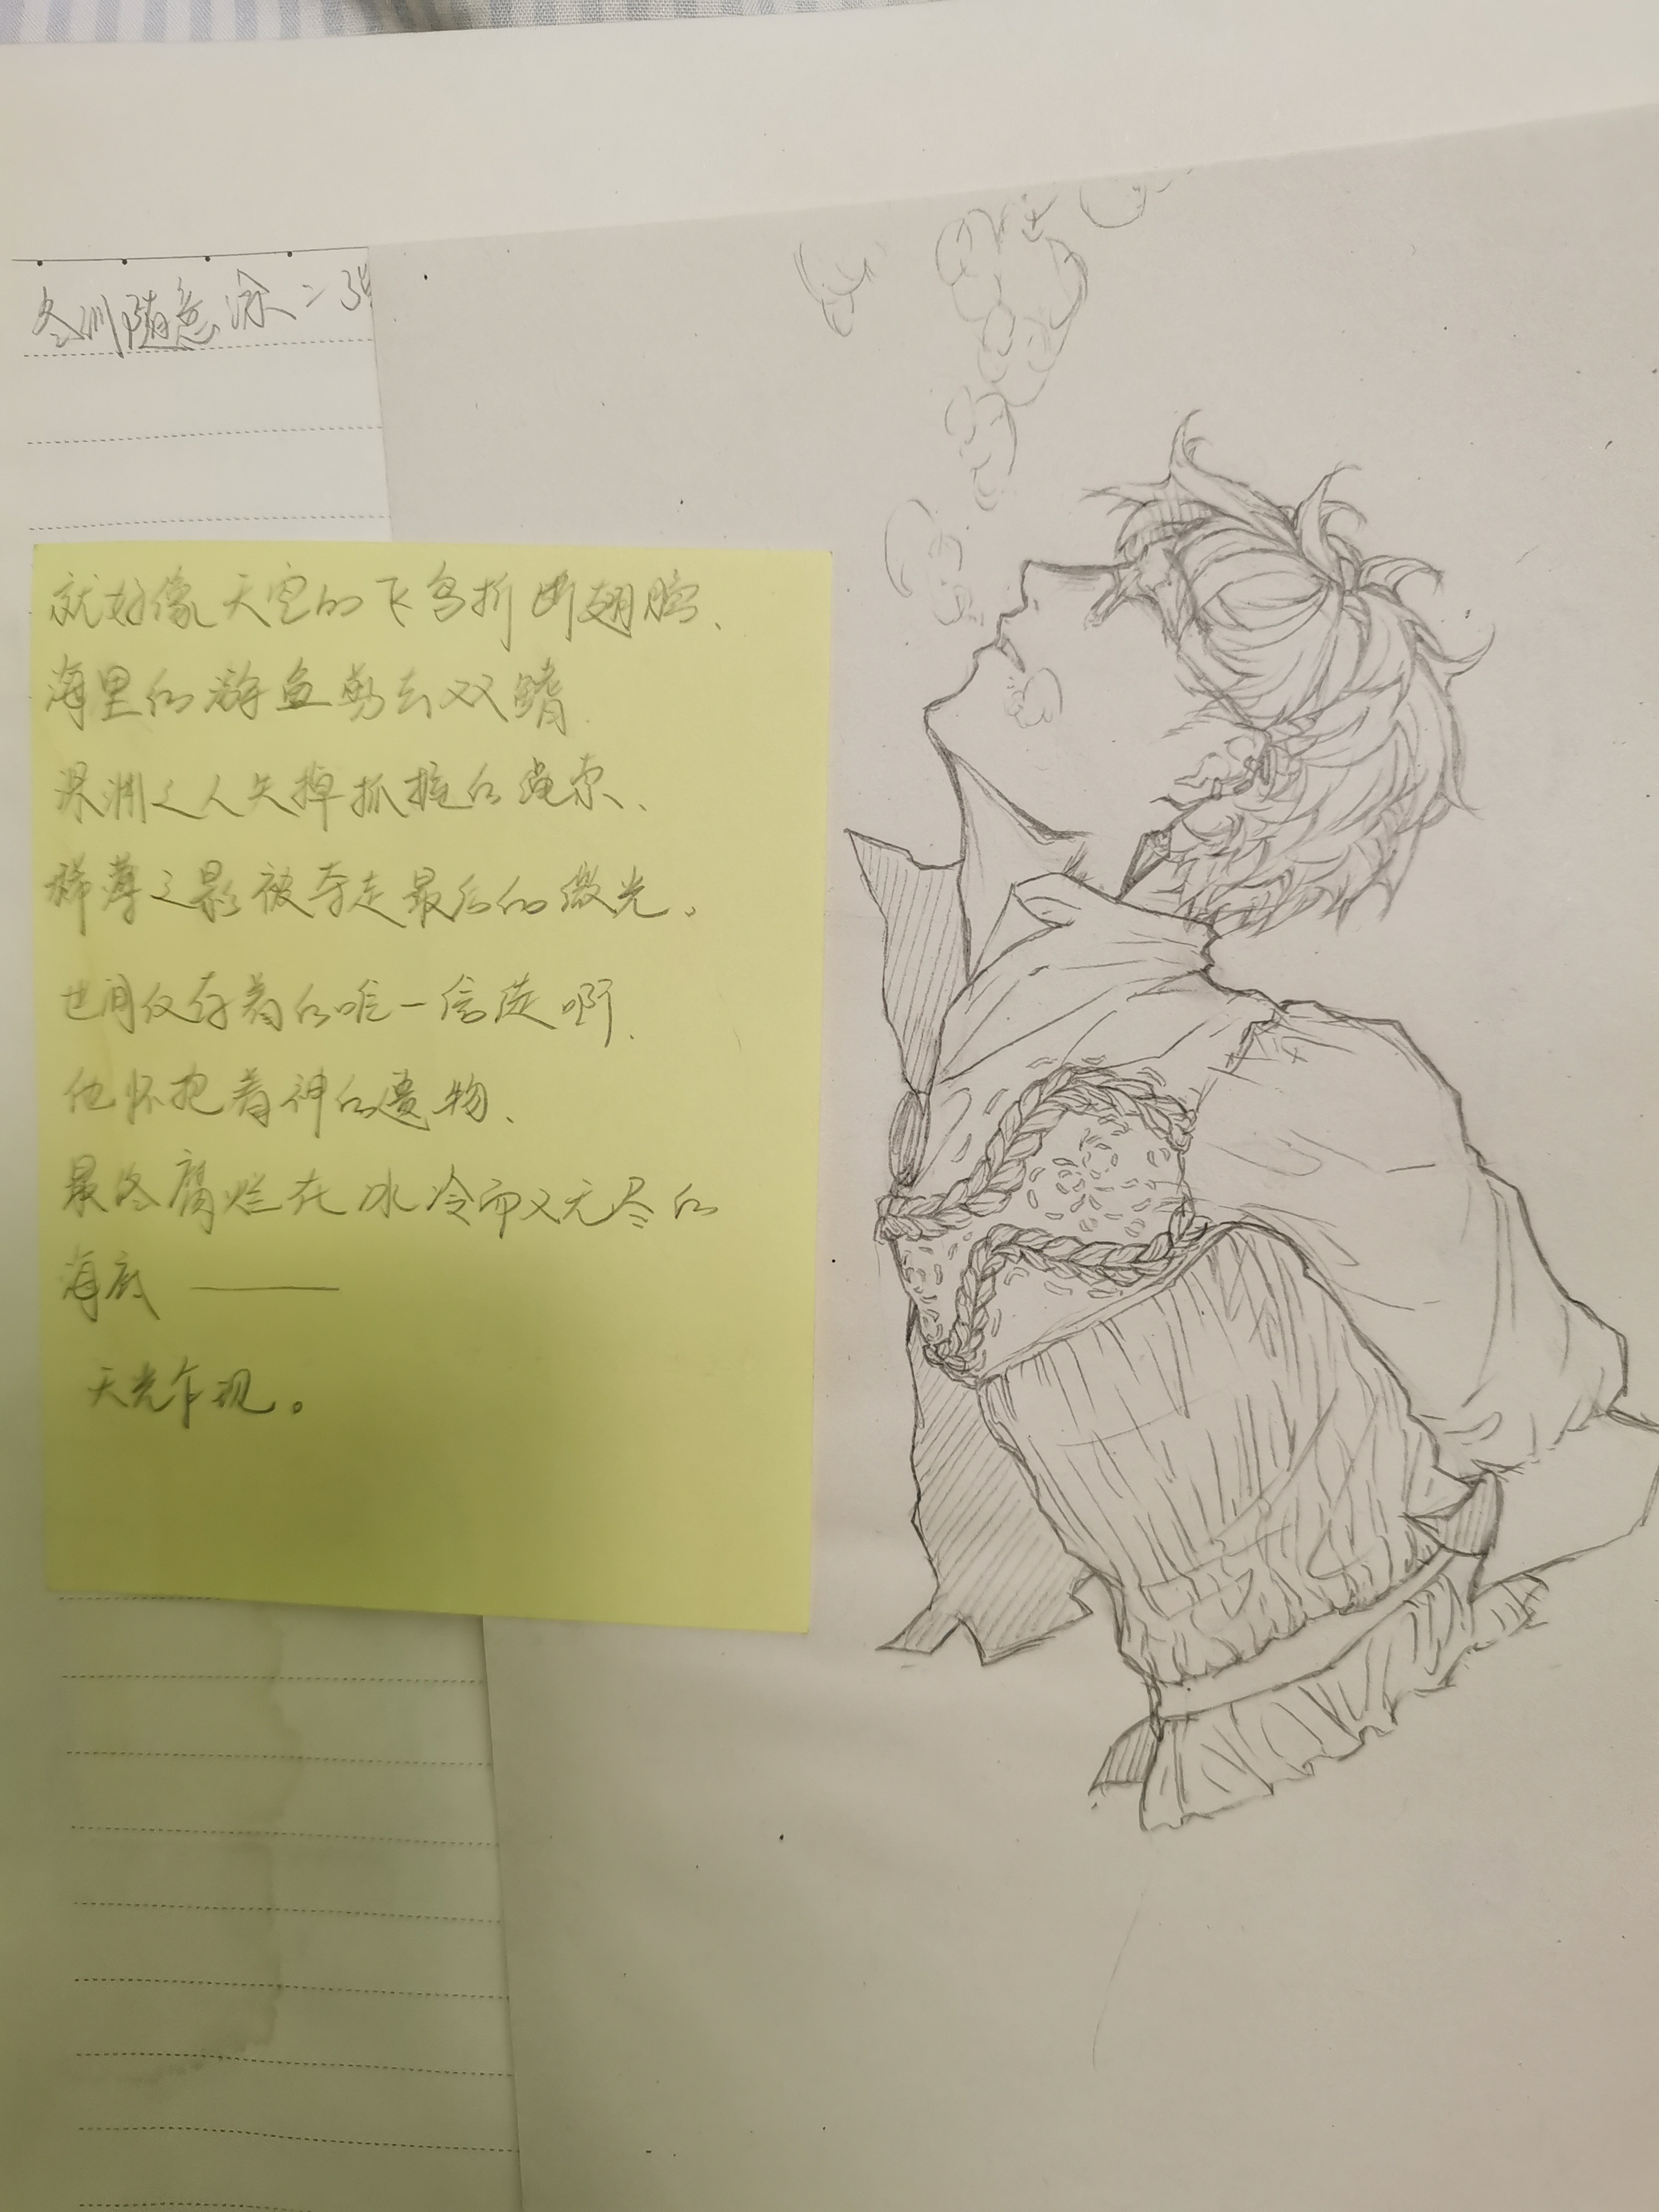 冬训随意涂二张
就好像天空的飞鸟折断翅膀、
海里的游鱼剪去双鳍
深渊之人失掉抓握的绳索、
稀薄之影被夺走最后的微光。
世间仅存着的唯一信徒啊、
他怀抱着神的遗物、
最终腐烂在冰冷而又无尽的
海底——
天光乍现。